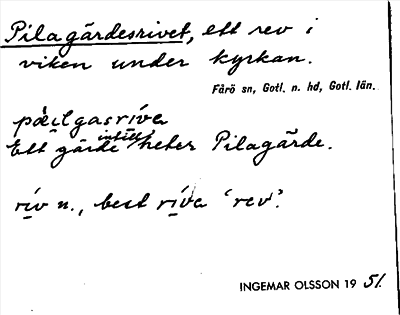 Pilagärdesrivet, ett rev i
viken under kyrkan.
Fårö sn, Gotl. n. hd, Gotl. län.
påilgasríva
Ett gärde intill heter Pilagärde.
rív n., best ríva 'rev'.
INGEMAR OLSSON 1951.